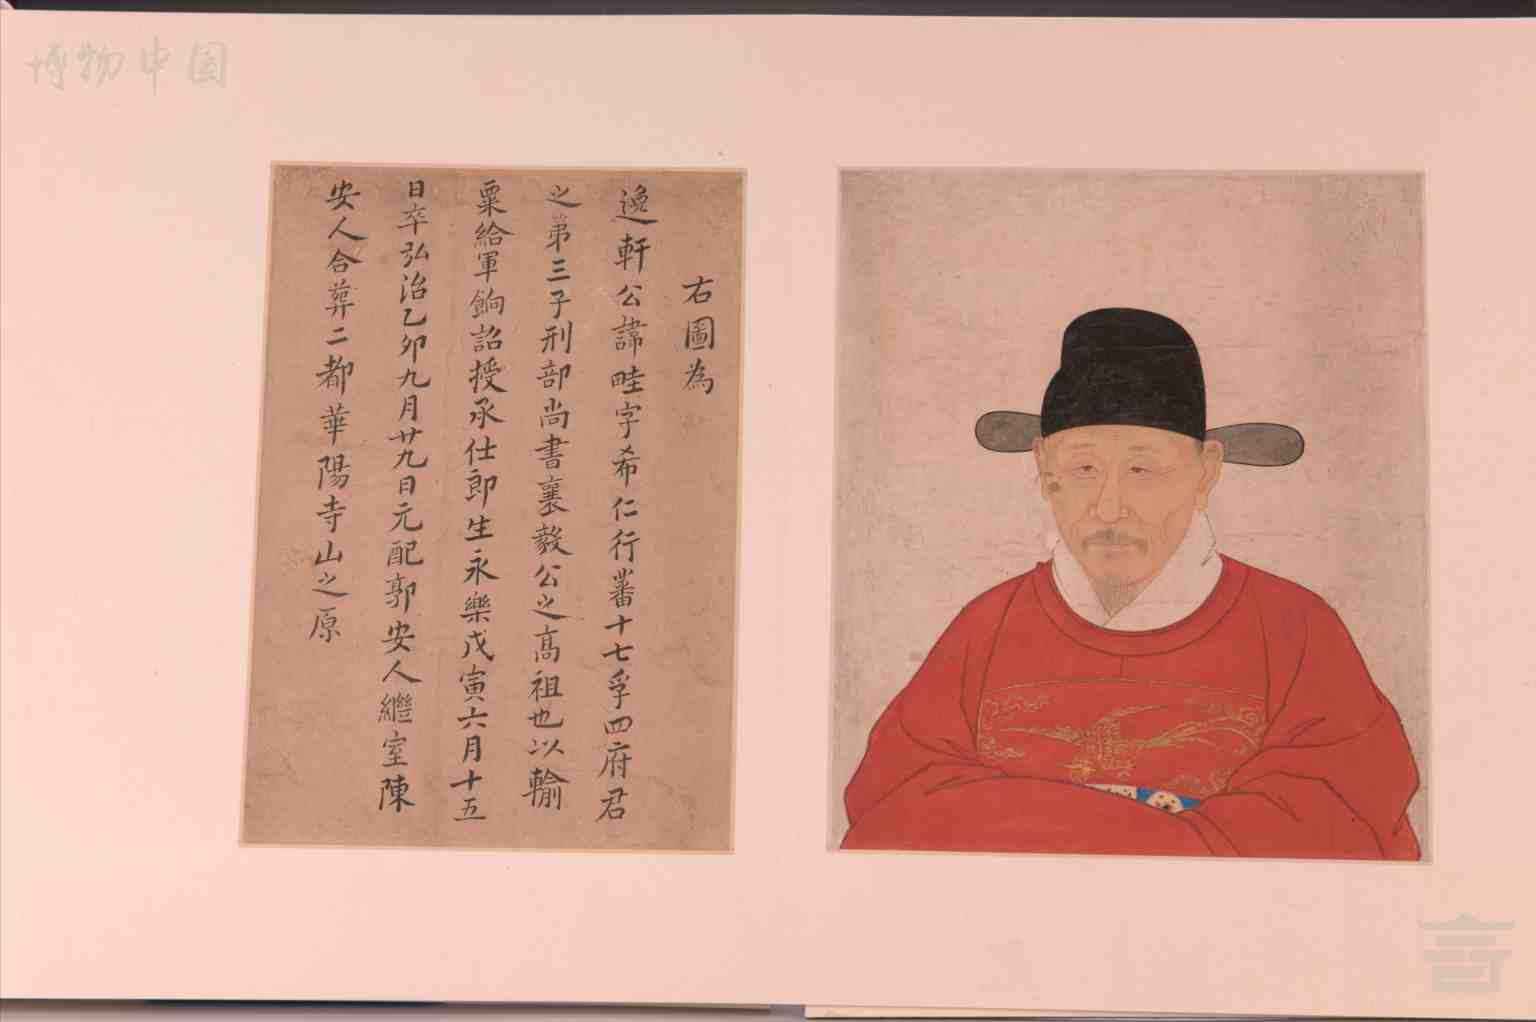 博物中国
右圖為
逸軒公諱畦字希仁行蕃十七孚四府君
之第三子刑部尚書襄毅公之高祖也以輸
粟給軍餉詔授承仕郎生永樂戊寅六月十五
日卒弘治乙卯九月廿九日元配郭安人繼室陳
安人合葬二都華陽寺山之原